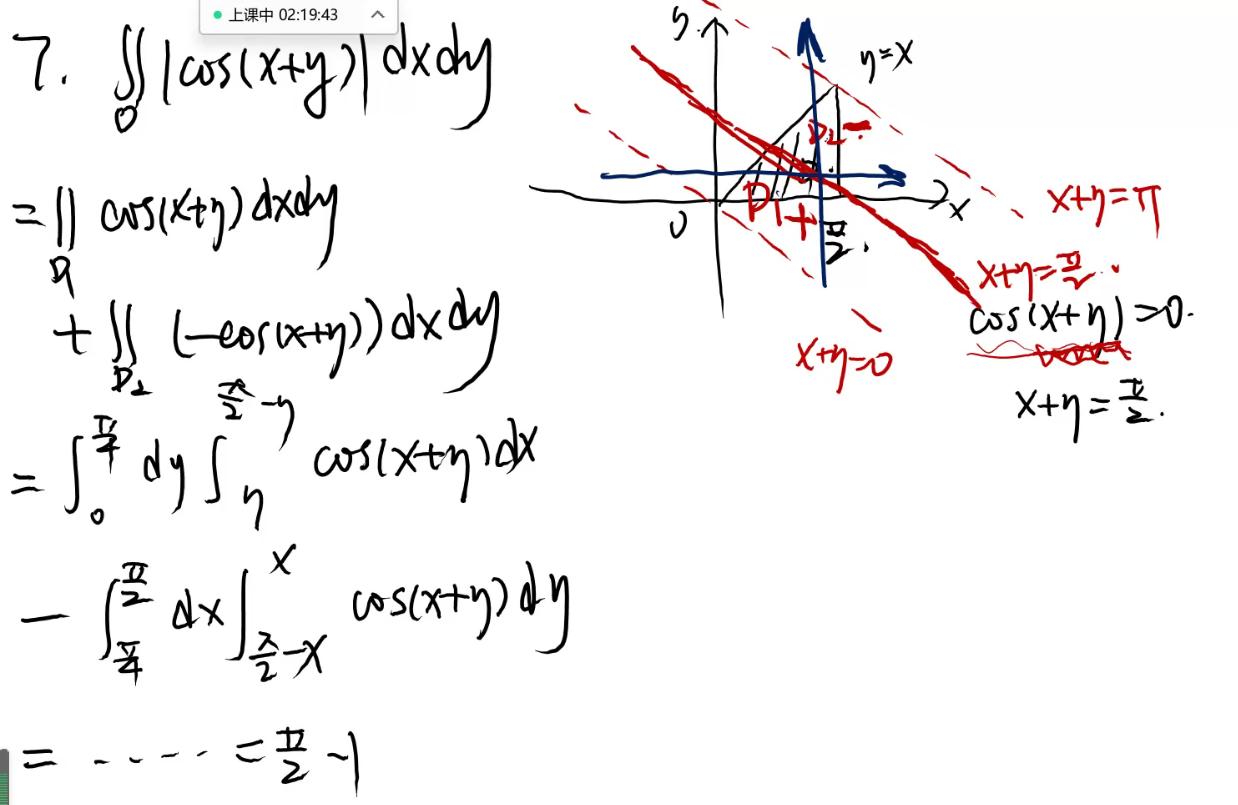 上课中 02:19:43
7. ∬_D |cos(x+y)| dxdy
= ∬_{D1} cos(x+y) dxdy
+ ∬_{D2} (-cos(x+y)) dxdy
= ∫_0^{π/4} dy ∫_y^{π/2 -y} cos(x+y) dx
- ∫_{π/4}^{π/2} dx ∫_{π/2 -x}^x cos(x+y) dy
= ..... = π/2 -1
y
y=x
D2 -
D1 +
0
π/2
x
x+y=π
x+y=π/2
cos(x+y)>0.
x+y=0
x+y=π/2.